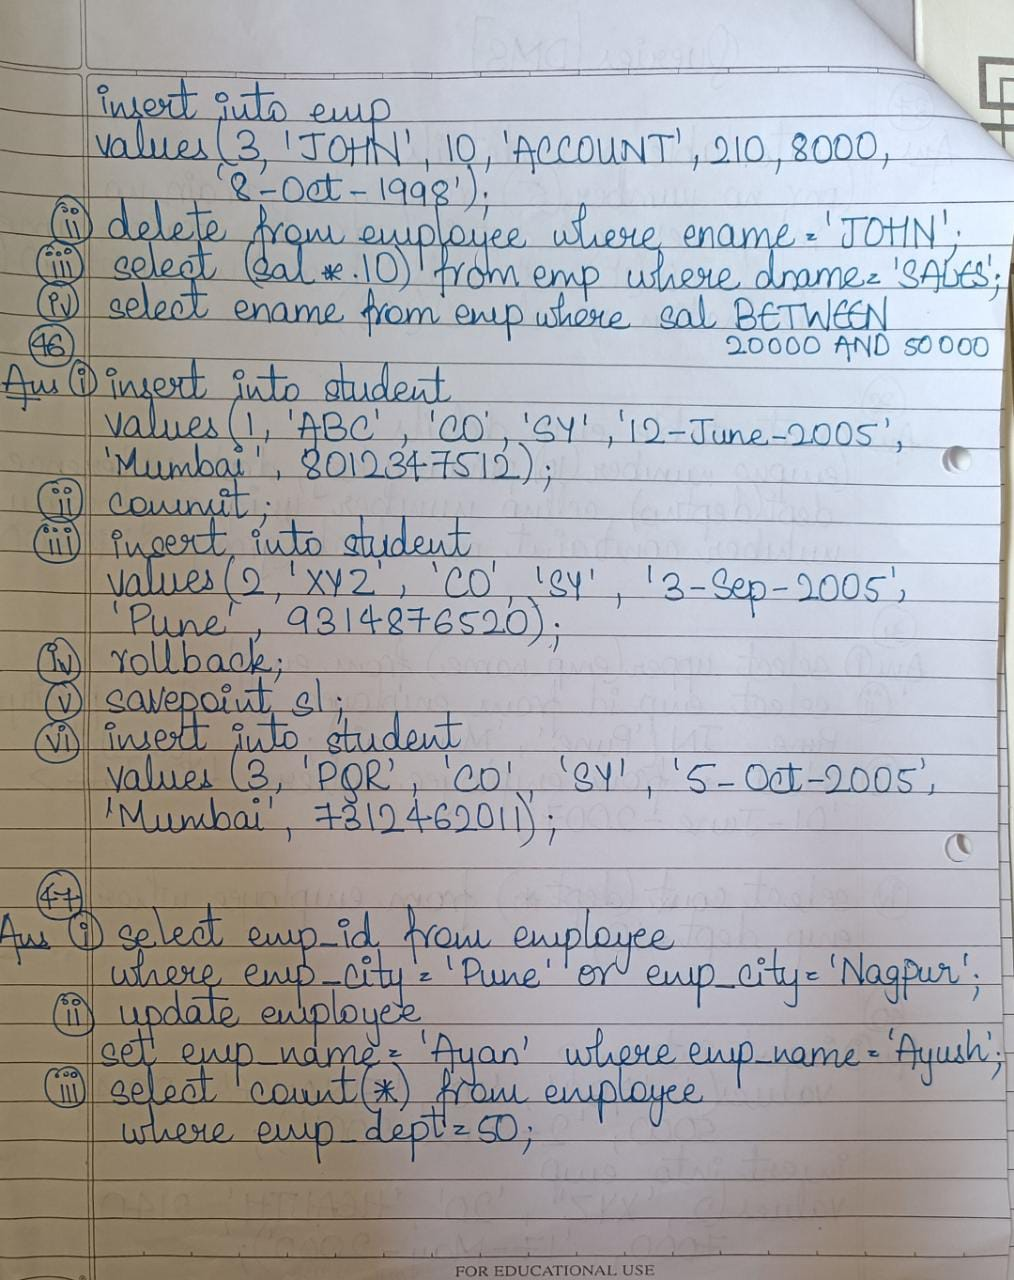 insert into emp
values (3, 'JOHN', 10, 'ACCOUNT', 210, 8000,
'8-Oct-1998');
ii delete from employee where ename = 'JOHN';
iii select (sal *.10) from emp where dname = 'SALES';
iv select ename from emp where sal BETWEEN
20000 AND 50000
46
Ans i insert into student
values (1, 'ABC', 'CO', 'SY', '12-June-2005',
'Mumbai', 8012347512);
ii commit;
iii insert into student
values (2, 'XYZ', 'CO', 'SY', '3-Sep-2005',
'Pune', 9314876520);
iv rollback;
v savepoint s1;
vi insert into student
values (3, 'PQR', 'CO', 'SY', '5-Oct-2005',
'Mumbai', 7312462011);
47
Ans i select emp_id from employee
where emp_city = 'Pune' or emp_city = 'Nagpur';
ii update employee
set emp_name = 'Ayan' where emp_name = 'Ayush';
iii select count(*) from employee
where emp_dept = 50;
FOR EDUCATIONAL USE